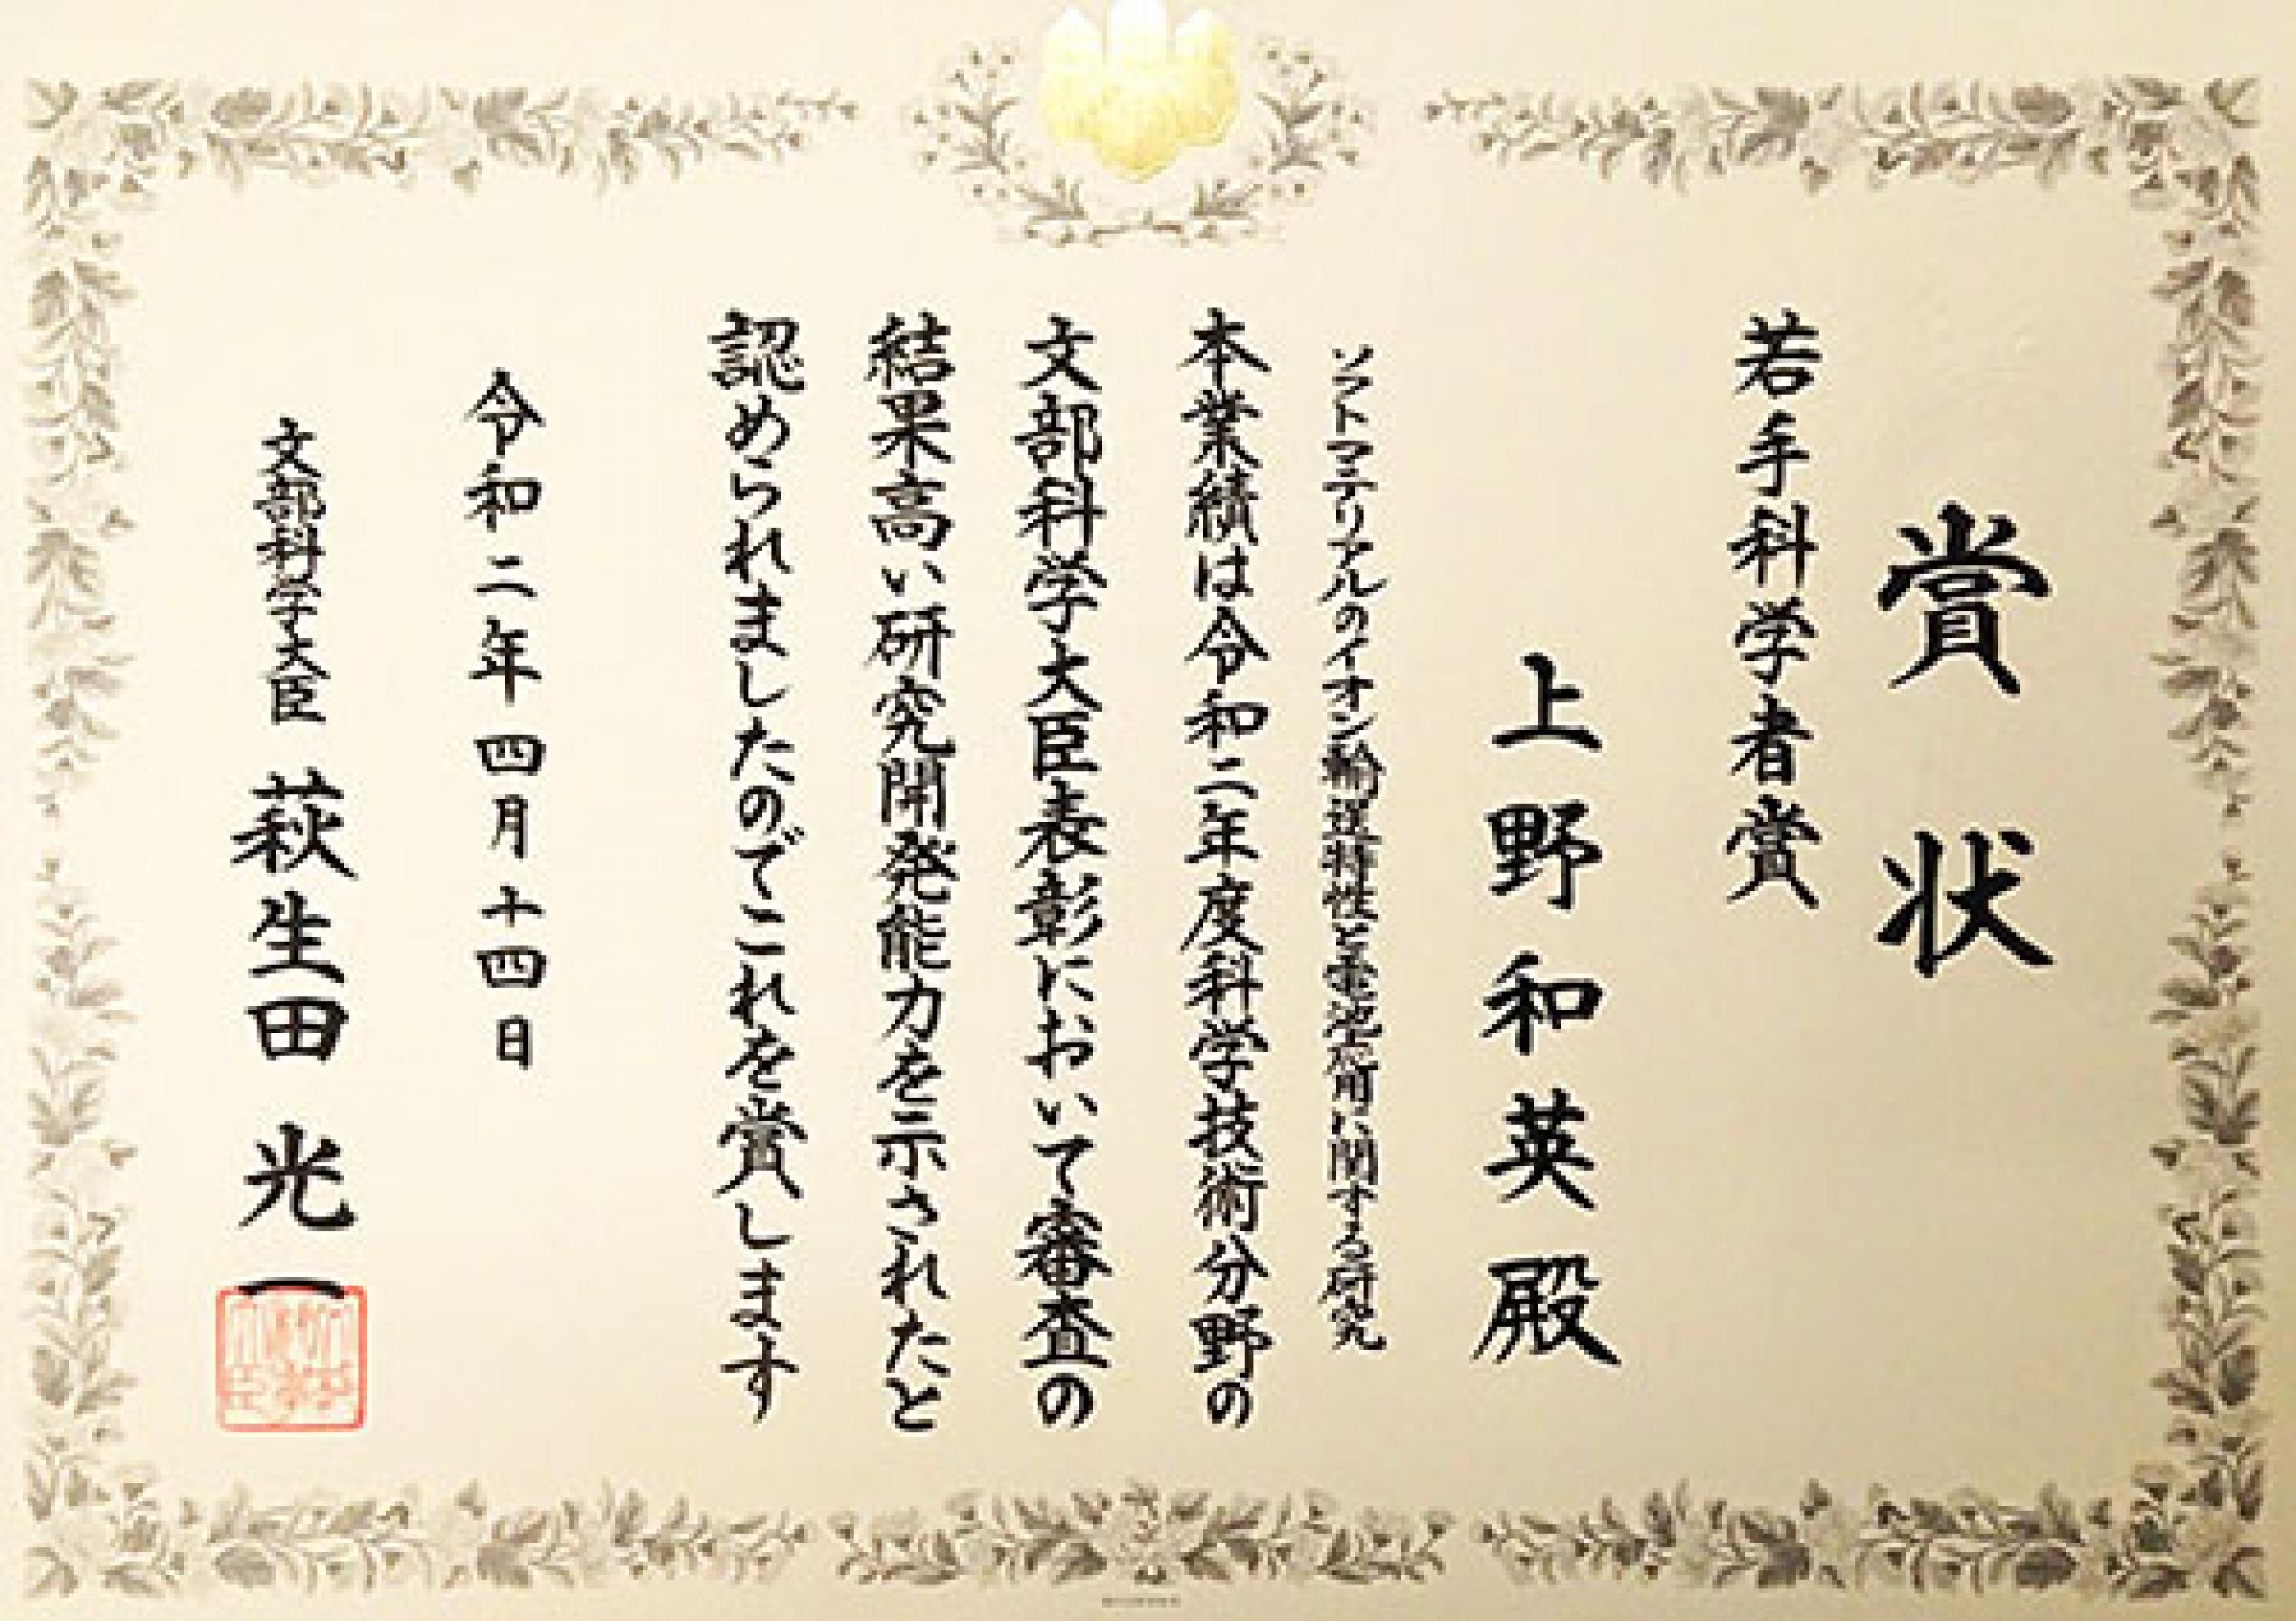 賞状
若手科学者賞
上野和英殿
ソフトマテリアルのイオン輸送特性と電池応用に関する研究
本業績は令和二年度科学技術分野の
文部科学大臣表彰において審査の
結果高い研究開発能力を示されたと
認められましたのでこれを賞します
令和二年四月十四日
文部科学大臣 萩生田光一